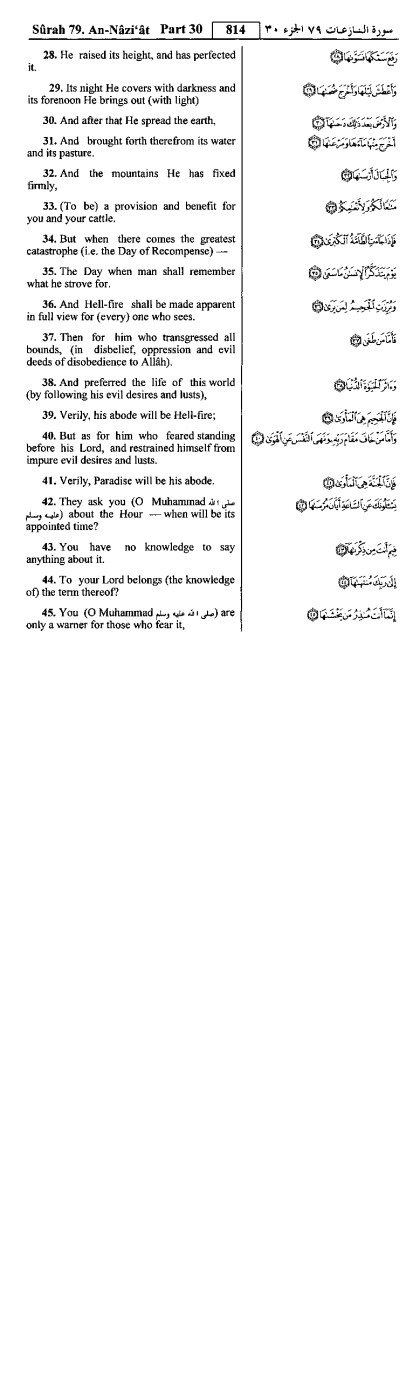 Sûrah 79. An-Nâzi‘ât Part 30 814 سورة النازعات ٧٩ الجزء ٣٠
28. He raised its height, and has perfected
it.
رَفَعَ سَمْكَهَا فَسَوَّىٰهَا ٢٨
29. Its night He covers with darkness and
its forenoon He brings out (with light)
وَأَغْطَشَ لَيْلَهَا وَأَخْرَجَ ضُحَىٰهَا ٢٩
30. And after that He spread the earth,
وَٱلْأَرْضَ بَعْدَ ذَٰلِكَ دَحَىٰهَا ٣٠
31. And brought forth therefrom its water
and its pasture.
أَخْرَجَ مِنْهَا مَآءَهَا وَمَرْعَىٰهَا ٣١
32. And the mountains He has fixed
firmly,
وَٱلْجِبَالَ أَرْسَىٰهَا ٣٢
33. (To be) a provision and benefit for
you and your cattle.
مَتَٰعًا لَّكُمْ وَلِأَنْعَٰمِكُمْ ٣٣
34. But when there comes the greatest
catastrophe (i.e. the Day of Recompense) —
فَإِذَا جَآءَتِ ٱلطَّآمَّةُ ٱلْكُبْرَىٰ ٣٤
35. The Day when man shall remember
what he strove for.
يَوْمَ يَتَذَكَّرُ ٱلْإِنسَٰنُ مَا سَعَىٰ ٣٥
36. And Hell-fire shall be made apparent
in full view for (every) one who sees.
وَبُرِّزَتِ ٱلْجَحِيمُ لِمَن يَرَىٰ ٣٦
37. Then for him who transgressed all
bounds, (in disbelief, oppression and evil
deeds of disobedience to Allâh).
فَأَمَّا مَن طَغَىٰ ٣٧
38. And preferred the life of this world
(by following his evil desires and lusts),
وَءَاثَرَ ٱلْحَيَوٰةَ ٱلدُّنْيَا ٣٨
39. Verily, his abode will be Hell-fire;
فَإِنَّ ٱلْجَحِيمَ هِىَ ٱلْمَأْوَىٰ ٣٩
40. But as for him who feared standing
before his Lord, and restrained himself from
impure evil desires and lusts.
وَأَمَّا مَنْ خَافَ مَقَامَ رَبِّهِۦ وَنَهَى ٱلنَّفْسَ عَنِ ٱلْهَوَىٰ ٤٠
41. Verily, Paradise will be his abode.
فَإِنَّ ٱلْجَنَّةَ هِىَ ٱلْمَأْوَىٰ ٤١
42. They ask you (O Muhammad صلى الله
عليه وسلم) about the Hour — when will be its
appointed time?
يَسْـَٔلُونَكَ عَنِ ٱلسَّاعَةِ أَيَّانَ مُرْسَىٰهَا ٤٢
43. You have no knowledge to say
anything about it.
فِيمَ أَنتَ مِن ذِكْرَىٰهَآ ٤٣
44. To your Lord belongs (the knowledge
of) the term thereof?
إِلَىٰ رَبِّكَ مُنتَهَىٰهَآ ٤٤
45. You (O Muhammad صلى الله عليه وسلم) are
only a warner for those who fear it,
إِنَّمَآ أَنتَ مُنذِرُ مَن يَخْشَىٰهَا ٤٥